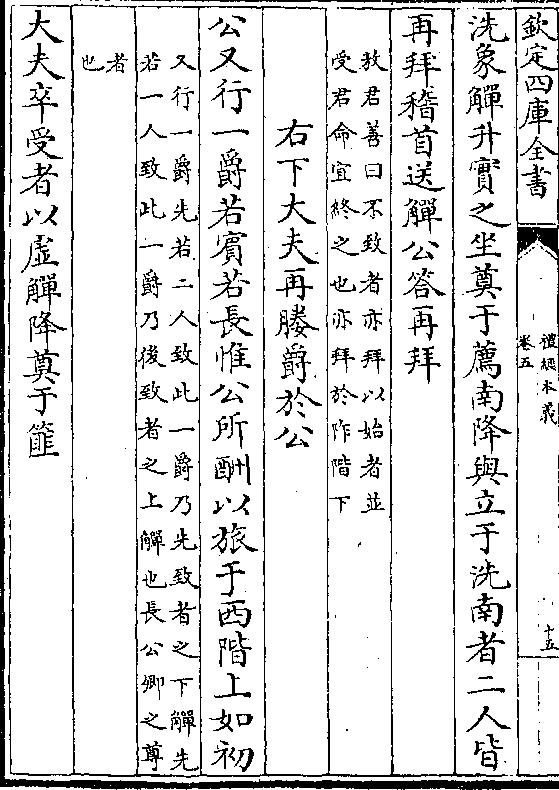 欽定四庫全書
禮經本義
卷五
十五
洗象觶升實之坐奠于薦南降與立于洗南者二人皆
再拜稽首送觶公答再拜
敖君善曰不致者亦拜以始者並
受君命宜終之也亦拜於阼階下
右下大夫再媵爵於公
公又行一爵若賓若長惟公所酬以旅于西階上如初
又行一爵先若二人致此一爵乃先致者之下觶先
若一人致此一爵乃後致者之上觶也長公卿之尊
者
也
大夫卒受者以虛觶降奠于篚